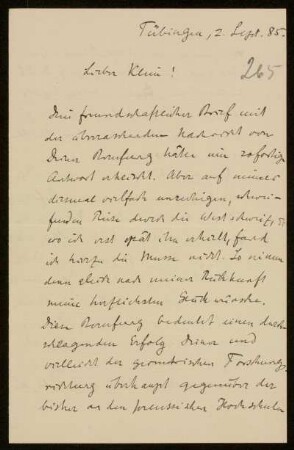 Tübingen, 2. Sept. 85.
Lieber Klein!
265
Dein freundschaftlicher Brief mit
der überraschenden Nachricht von
Deiner Berufung hätte eine sofortige
Antwort erheischt. Aber auf meiner
diesmal vielfach unruhigen,
Reise durch die Westschweiz,
wo ich erst spät ihn erhielt, fand
ich hierzu die Musse nicht. So nimm
denn gleich nach meiner Rückkunft
meine herzlichsten Glückwünsche.
Diese Berufung bedeutet einen durch-
schlagenden Erfolg Deiner und
vielleicht der geometrischen Forschungs-
richtung überhaupt gegenüber der
bisher an den preussischen Hochschulen